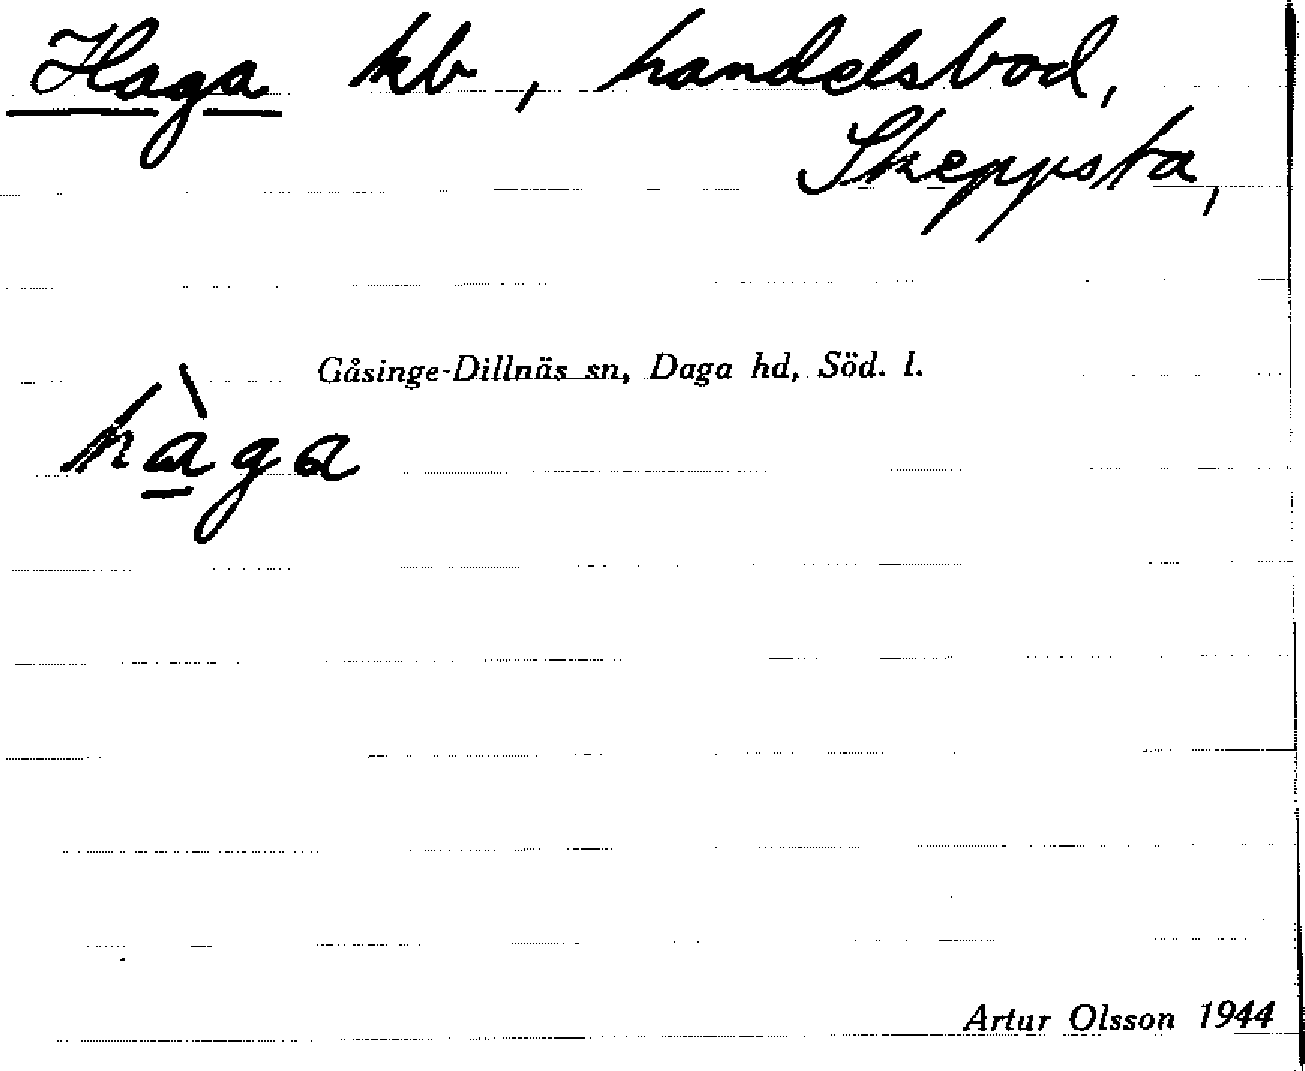 Haga hb, handelsbod,
Skeppsta,
Gåsinge-Dillnäs sn, Daga hd, Söd. l.
hàga
Artur Olsson 1944